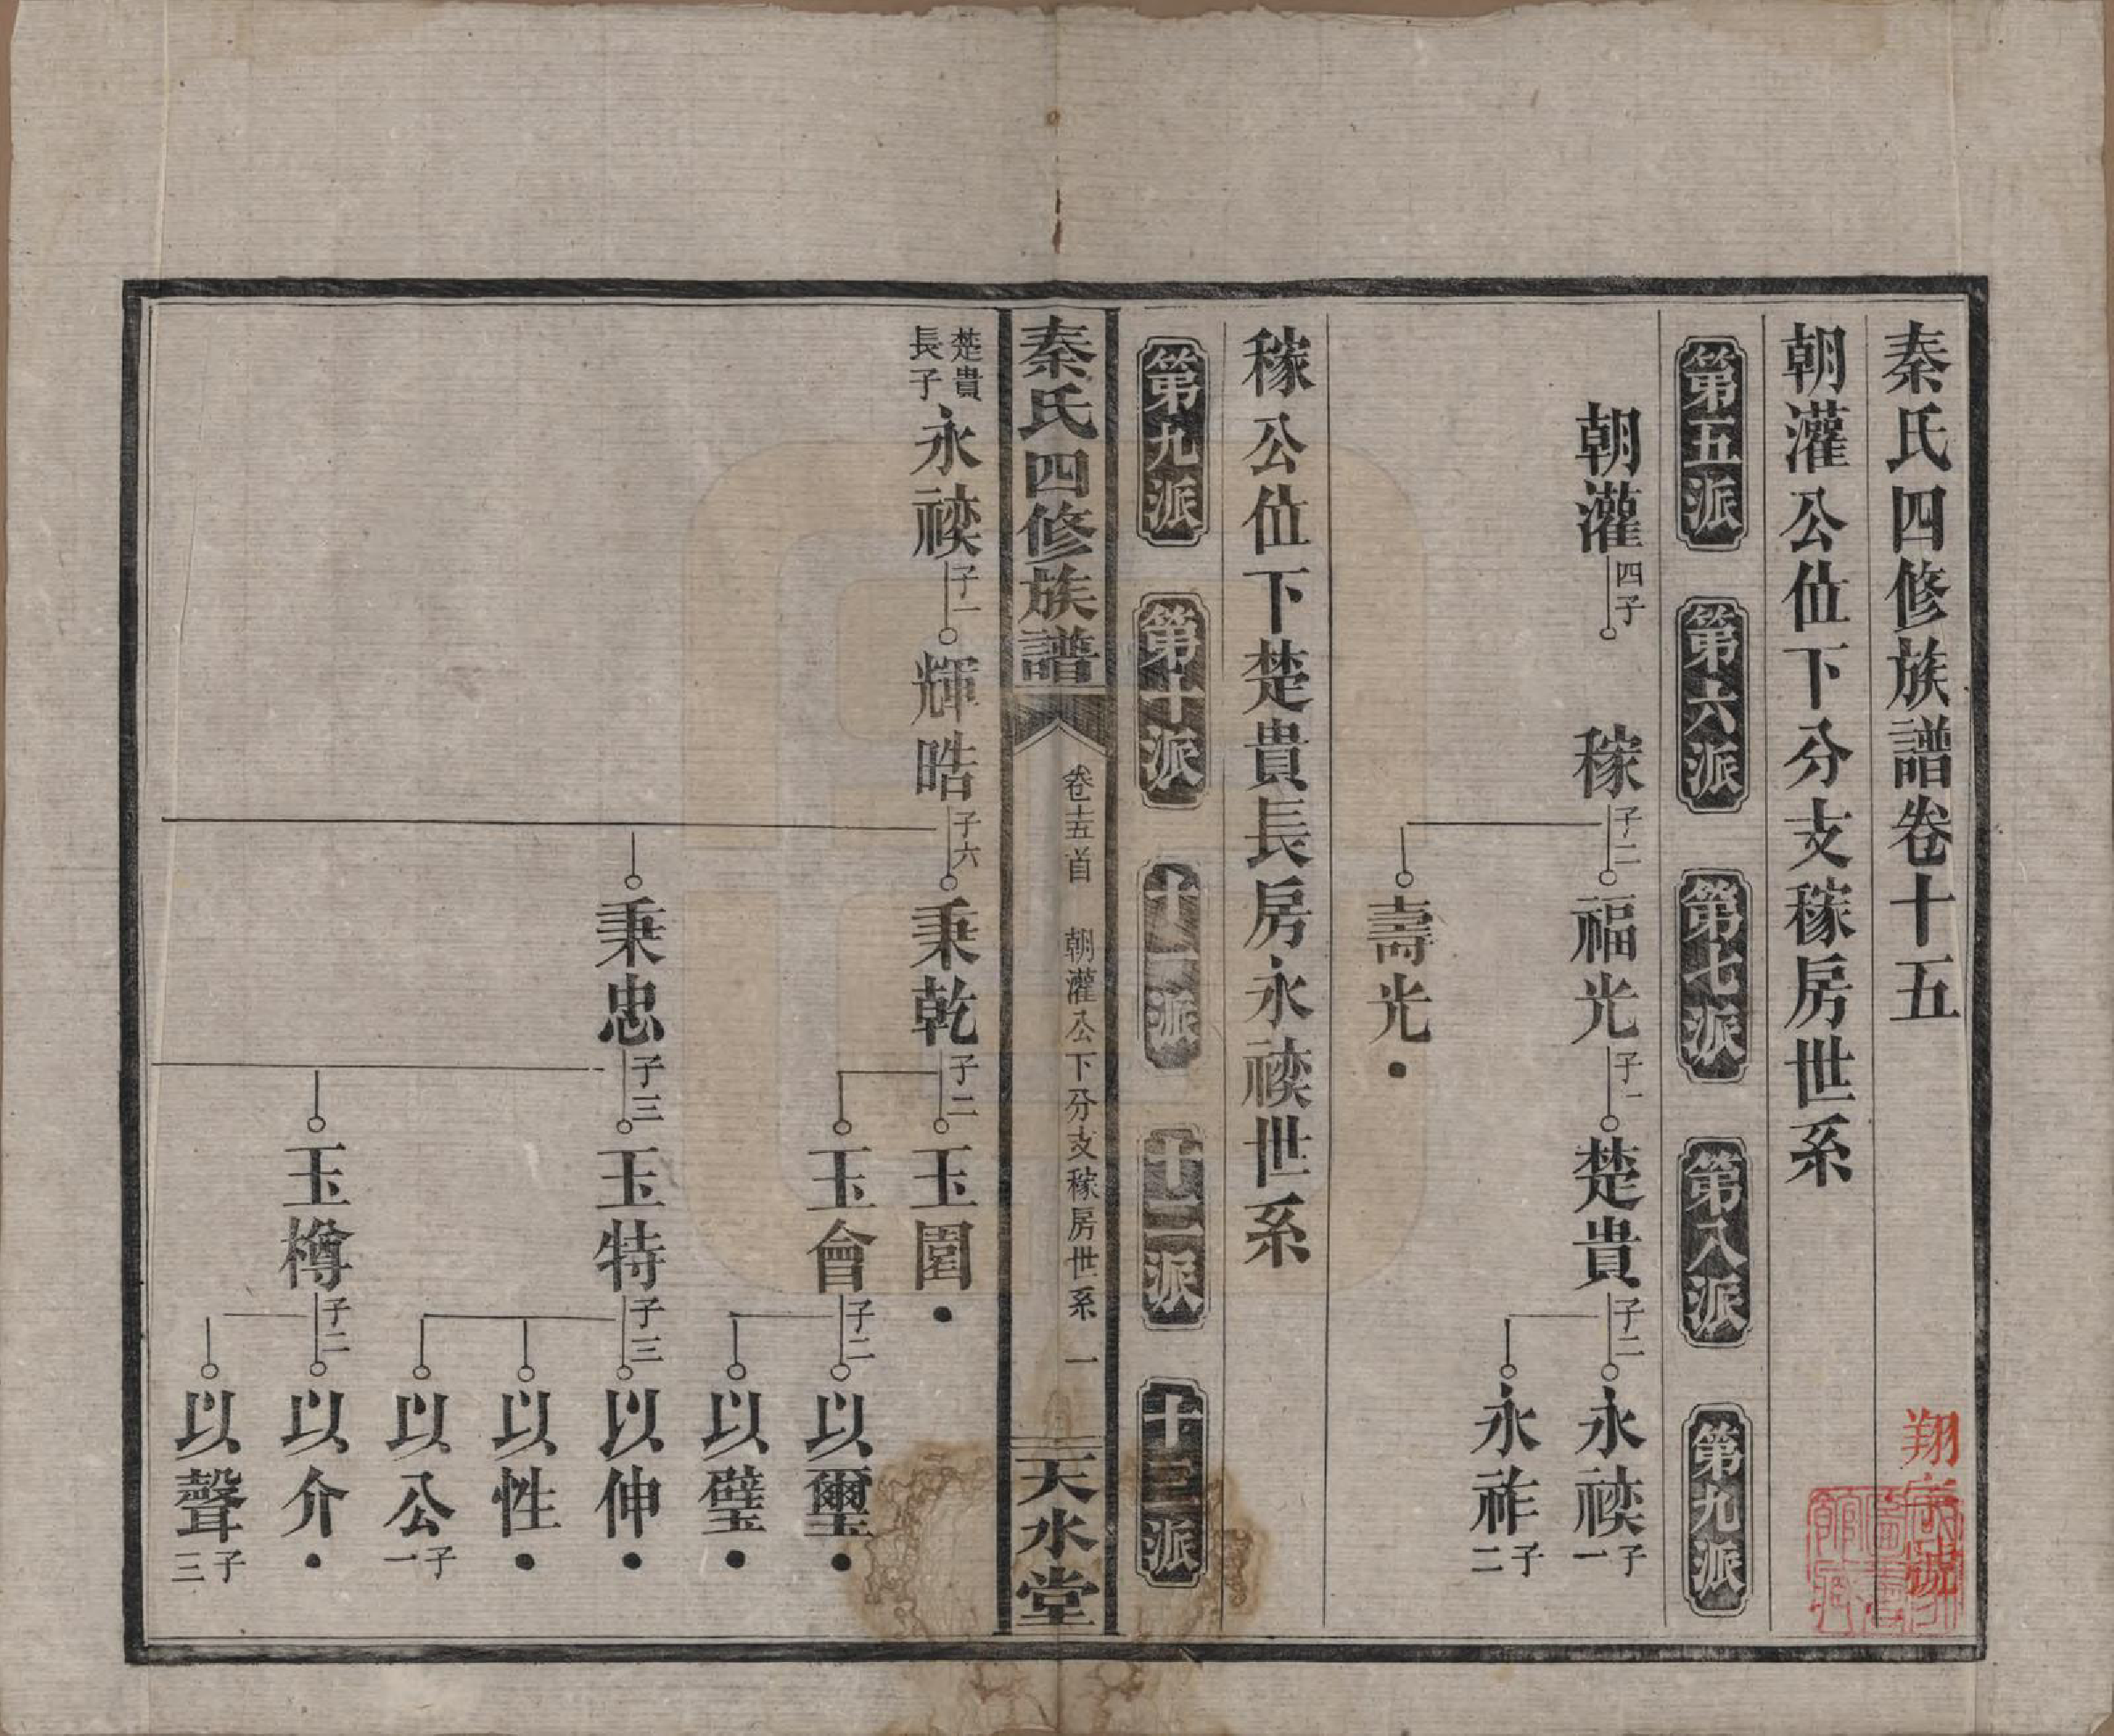 秦氏四修族譜卷十五
朝灌公位下分支稼房世系
第五派 第六派 第七派 第八派 第九派
朝灌 四子 稼 子二 福光 子一 楚貴 子二 永禊 子一
永祚 子二
壽光
稼公位下楚貴長房永禊世系
第九派 第十派 十一派 十二派 十三派
秦氏四修族譜 卷十五首 朝灌公下分支稼房世系 一 天水堂
楚貴
長子
永禊 子一 輝晧 子六 秉乾 子二 玉圍
玉會 子二 以璽
以璧
秉忠 子三 玉特 子三 以伸
以性
以公 子一
玉樽 子二 以介
以聲 子三